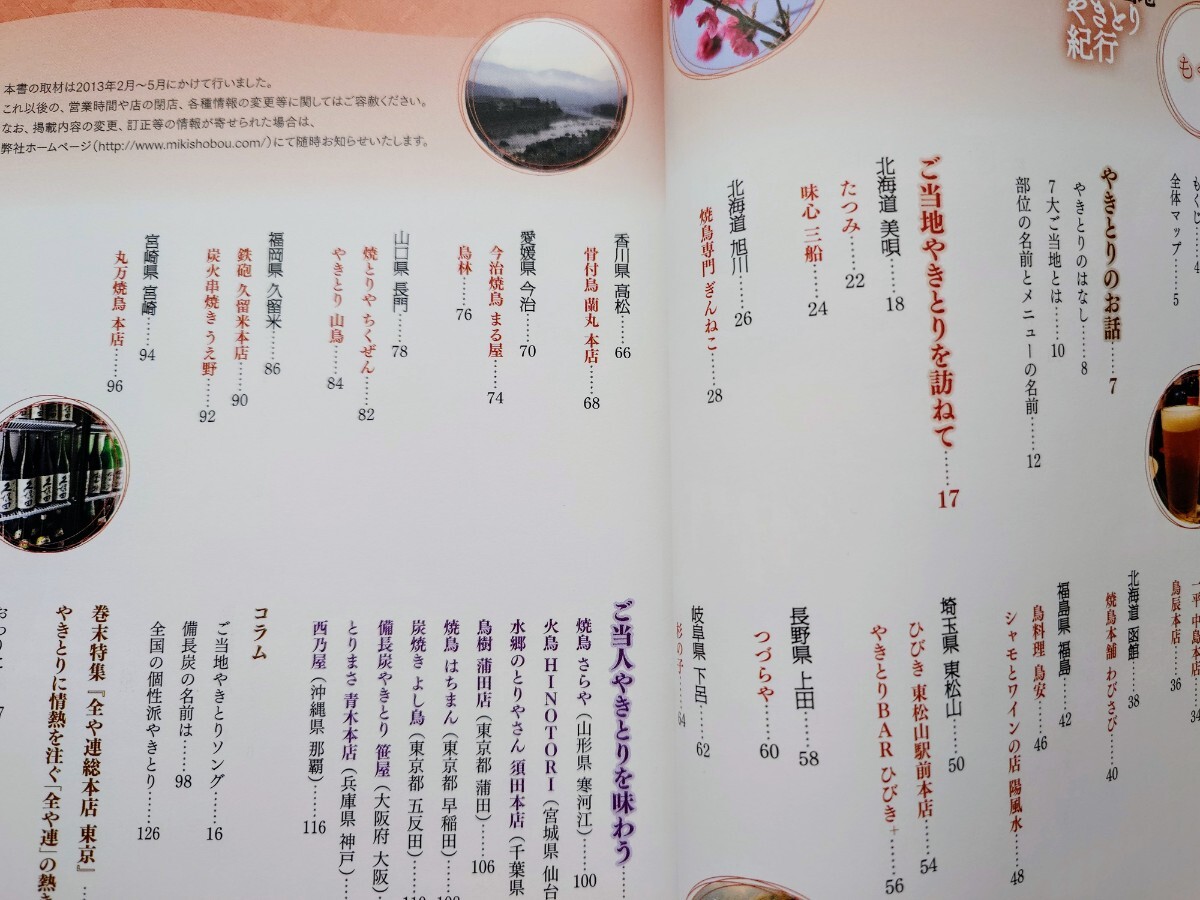 やきとり
や紀行
全体マップ……5
やきとりのお話……7
やきとりのはなし……8
7大ご当地とは……10
部位の名前とメニューの名前……12
ご当地やきとりを訪ねて……17
北海道 美唄……18
たつみ……22
味心 三船……24
北海道 旭川……26
焼鳥専門 ぎんねこ……28
一平 中島本店……34
鳥辰本店……36
北海道 函館……38
焼鳥本舗 わびさび……40
福島県 福島……42
鳥料理 鳥安……46
シャモとワインの店 陽風水……48
埼玉県 東松山……50
ひびき 東松山駅前本店……54
やきとりBAR ひびき+……56
長野県 上田……58
つづらや……60
岐阜県 下呂……62
杉の子……64
本書の取材は2013年2月〜5月にかけて行いました。
これ以後の、営業時間や店の閉店、各種情報の変更等に関してはご容赦ください。
なお、掲載内容の変更、訂正等の情報が寄せられた場合は、
弊社ホームページ(http://www.mikishobou.com/)にて随時お知らせいたします。
香川県 高松……66
骨付鳥 蘭丸 本店……68
愛媛県 今治……70
今治焼鳥 まる屋……74
鳥林……76
山口県 長門……78
焼とりや ちくぜん……82
やきとり 山鳥……84
福岡県 久留米……86
鉄砲 久留米本店……90
炭火串焼き うえ野……92
宮崎県 宮崎……94
丸万焼鳥 本店……96
ご当人やきとりを味わう……
焼鳥 さらや(山形県 寒河江)……100
火鳥 HINOTORI(宮城県 仙台
水郷のとりやさん 須田本店(千葉県
鳥樹 蒲田店(東京都 蒲田)……106
焼鳥 はちまん(東京都 早稲田)……108
炭焼き よし鳥(東京都 五反田)……110
備長炭やきとり 笹屋(大阪府 大阪)…
とりまさ 青木本店(兵庫県 神戸)…
西乃屋(沖縄県 那覇)……116
コラム
ご当地やきとりソング……16
備長炭の名前は……98
全国の個性派やきとり……126
巻末特集『全や連総本店 東京』…
やきとりに情熱を注ぐ「全や連」の熱き
久保田